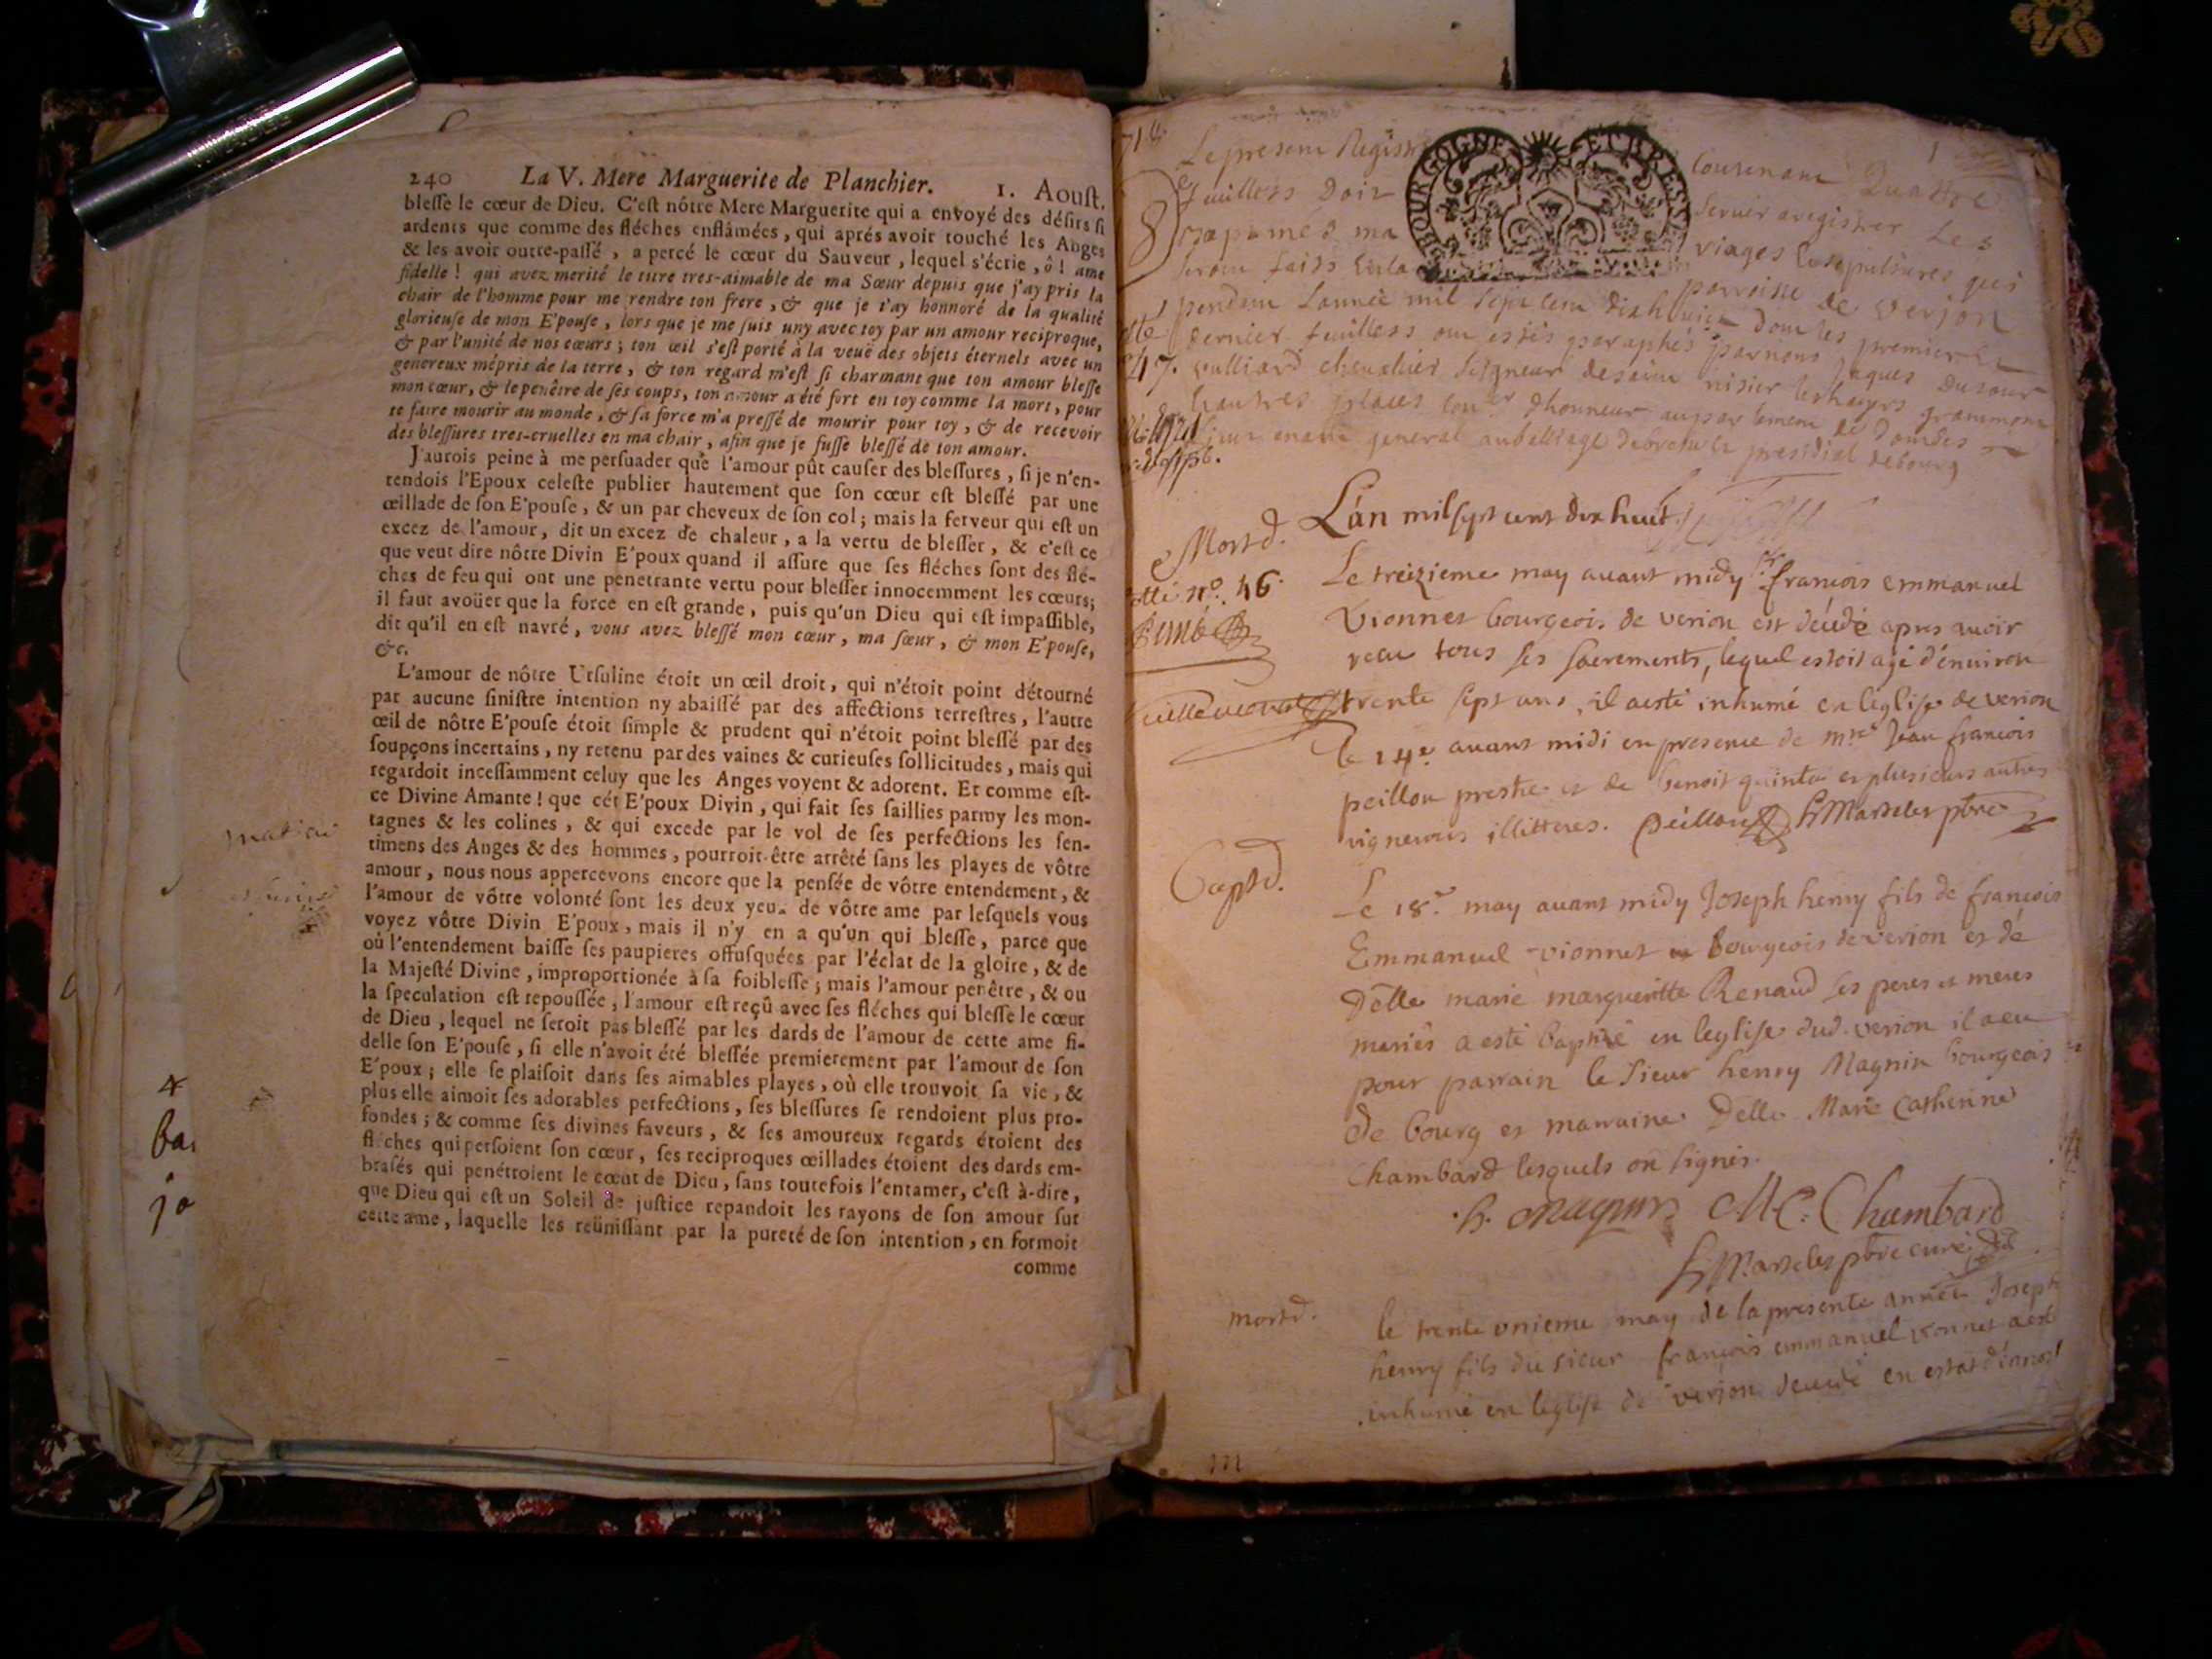 240 La V. Mere Marguerite de Planchier. 1. Aoust.
blesse le cœur de Dieu. C'est nôtre Mere Marguerite qui a envoyé des désirs si
ardents que comme des fléches enflâmées, qui aprés avoir touché les Anges
& les avoir outre-passé, a percé le cœur du Sauveur, lequel s'écrie, ô! ame
fidelle! qui avez merité le titre tres-aimable de ma Sœur depuis que j'ay pris la
chair de l'homme pour me rendre ton frere, & que je t'ay honnoré de la qualité
glorieuse de mon E'pouse, lors que je me suis uny avec toy par un amour reciproque,
& par l'unité de nos cœurs; ton œil s'est porté à la veuë des objets éternels avec un
genereux mépris de la terre, & ton regard m'est si charmant que ton amour blesse
mon cœur, & le penêtre de ses coups, ton amour a été fort en toy comme la mort, pour
te faire mourir au monde, & sa force m'a pressé de mourir pour toy, & de recevoir
des blessures tres-cruelles en ma chair, afin que je fusse blessé de ton amour.
J'aurois peine à me persuader que l'amour pût causer des blessures, si je n'en-
tendois l'Epoux celeste publier hautement que son cœur est blessé par une
œillade de son E'pouse, & un par cheveux de son col; mais la ferveur qui est un
excez de l'amour, dit un excez de chaleur, a la vertu de blesser, & c'est ce
que veut dire nôtre Divin E'poux quand il assure que ses fléches sont des flé-
ches de feu qui ont une penetrante vertu pour blesser innocemment les cœurs;
il faut avoüer que la force en est grande, puis qu'un Dieu qui est impassible,
dit qu'il en est navré, vous avez blessé mon cœur, ma sœur, & mon E'pouse,
&c.
L'amour de nôtre Ursuline étoit un œil droit, qui n'étoit point détourné
par aucune sinistre intention ny abaissé par des affections terrestres, l'autre
œil de nôtre E'pouse étoit simple & prudent qui n'étoit point blessé par des
soupçons incertains, ny retenu par des vaines & curieuses sollicitudes, mais qui
regardoit incessamment celuy que les Anges voyent & adorent. Et comme est-
ce Divine Amante! que cét E'poux Divin, qui fait ses saillies parmy les mon-
tagnes & les colines, & qui excede par le vol de ses perfections les sen-
timens des Anges & des hommes, pourroit-être arrêté sans les playes de vôtre
amour, nous nous appercevons encore que la pensée de vôtre entendement, &
l'amour de vôtre volonté sont les deux yeu. de vôtre ame par lesquels vous
voyez vôtre Divin E'poux, mais il n'y en a qu'un qui blesse, parce que
où l'entendement baisse ses paupieres offusquées par l'éclat de la gloire, & de
la Majesté Divine, improportionée à sa foiblesse; mais l'amour penêtre, & ou
la speculation est repoussée, l'amour est reçû avec ses fléches qui blesse le cœur
de Dieu, lequel ne seroit pas blessé par les dards de l'amour de cette ame fi-
delle son E'pouse, si elle n'avoit été blessée premierement par l'amour de son
E'poux; elle se plaisoit dans ses aimables playes, où elle trouvoit sa vie, &
plus elle aimoit ses adorables perfections, ses blessures se rendoient plus pro-
fondes; & comme ses divines faveurs, & ses amoureux regards étoient des
fléches qui persoient son cœur, ses reciproques œillades étoient des dards em-
brasés qui penétroient le cœut de Dieu, sans toutefois l'entamer, c'est à-dire,
que Dieu qui est un Soleil de justice repandoit les rayons de son amour sur
cette ame, laquelle les reünissant par la pureté de son intention, en formoit
comme
Le present Registre Contenant Quattre
feuillets Doit Servir a registrer Les
viages Et sepultures qui
seront faits paroisse de verjon
pendant Lannée mil sept cent dixhuict dont les premier Et
dernier feuillets ont estés paraphés par nous Jaques Dufour
vulliard chevallier seigneur
Bourgogne et Bresse
Lan mil sept cent dix huit
Mort d.
Le treizieme may avant midy sr francois emmanuel
Vionnet bourgeois de verion est décédé apres avoir
receu tous ses sacrements, lequel estoit agé d'environ
trente sept ans, il a esté inhumé en l'eglise de verion
le 14e avant midi en presence de mre Jean francois
peillon prestre et de benoit quinta et plusieurs autres
vignerons illitteres. peillon
Bapt d.
Le 18e may avant midy Joseph henry fils de francois
Emmanuel vionnet bourgeois de verion et de
Delle marie margueritte Renaud ses peres et meres
mariés a esté baptisé en leglise dud. verion il a eu
pour parrain le sieur henry Magnin bourgeois
de bourg et marraine Delle Marie Catherine
Chambard lesquels on signés.
h. magnin M C. Chambard
mort d.
le trente unieme may de la presente année Joseph
henry fils du sieur francois emmanuel vionnet a esté
inhumé en leglise de verjon decedé en estat d'innoc